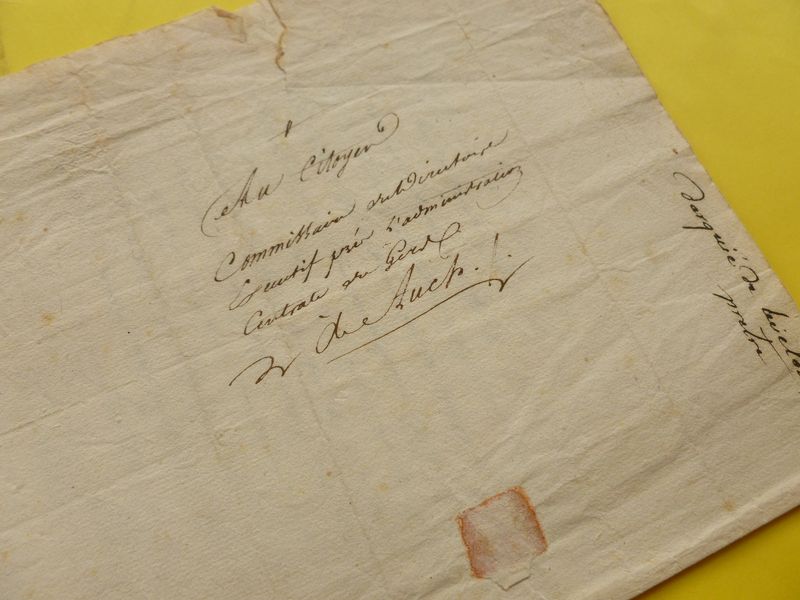 Au Citoyen
Commissaire du Directoire
Executif près l'administration
Centrale du Gers
à Auch.
darquié de
pretre